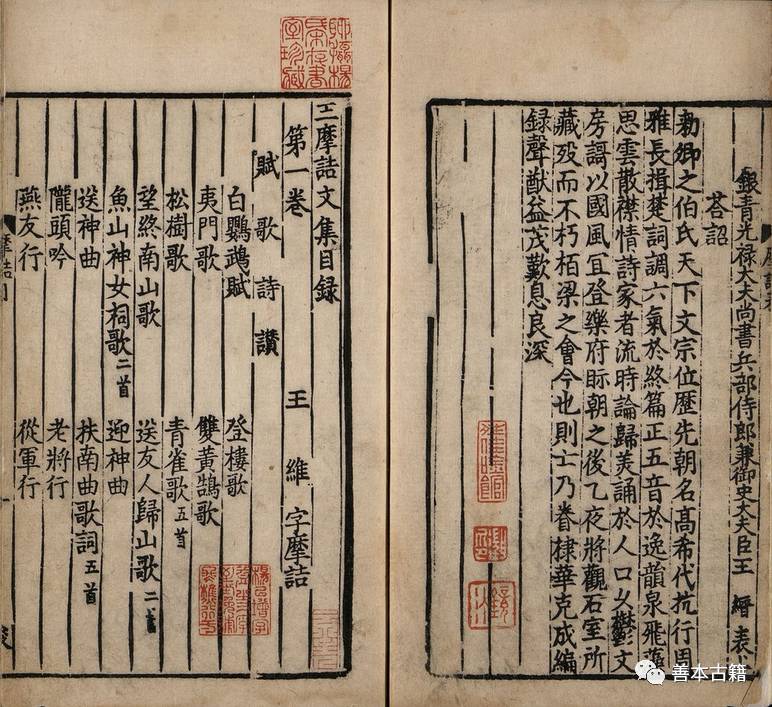 銀青光禄大夫尚書兵部侍郎兼御史大夫臣王 縉表
荅詔
勑卿之伯氏天下文宗位歷先朝名髙希代抗行周
雅長揖楚詞調六氣於終篇正五音於逸韻泉飛藻
思雲散襟情詩家者流時論歸羙誦於人口乆鬱文
房謌以國風冝登樂府眎朝之後乙夜將觀石室所
藏殁而不朽栢梁之會今也則亡乃眷棣華克成編
録聲猷益茂歎息良深
聊攝楊
宋存書
室珍藏
王摩詰文集目録
第一卷 王 維 字摩詰
賦 歌 詩 讃
白鸚鵡賦 登樓歌
夷門歌 雙黄鵠歌
松樹歌 青雀歌五首
望終南山歌 送友人歸山歌二首
魚山神女祠歌二首 迎神曲
送神曲 扶南曲歌詞五首
隴頭吟 老將行
燕友行 從軍行
善本古籍